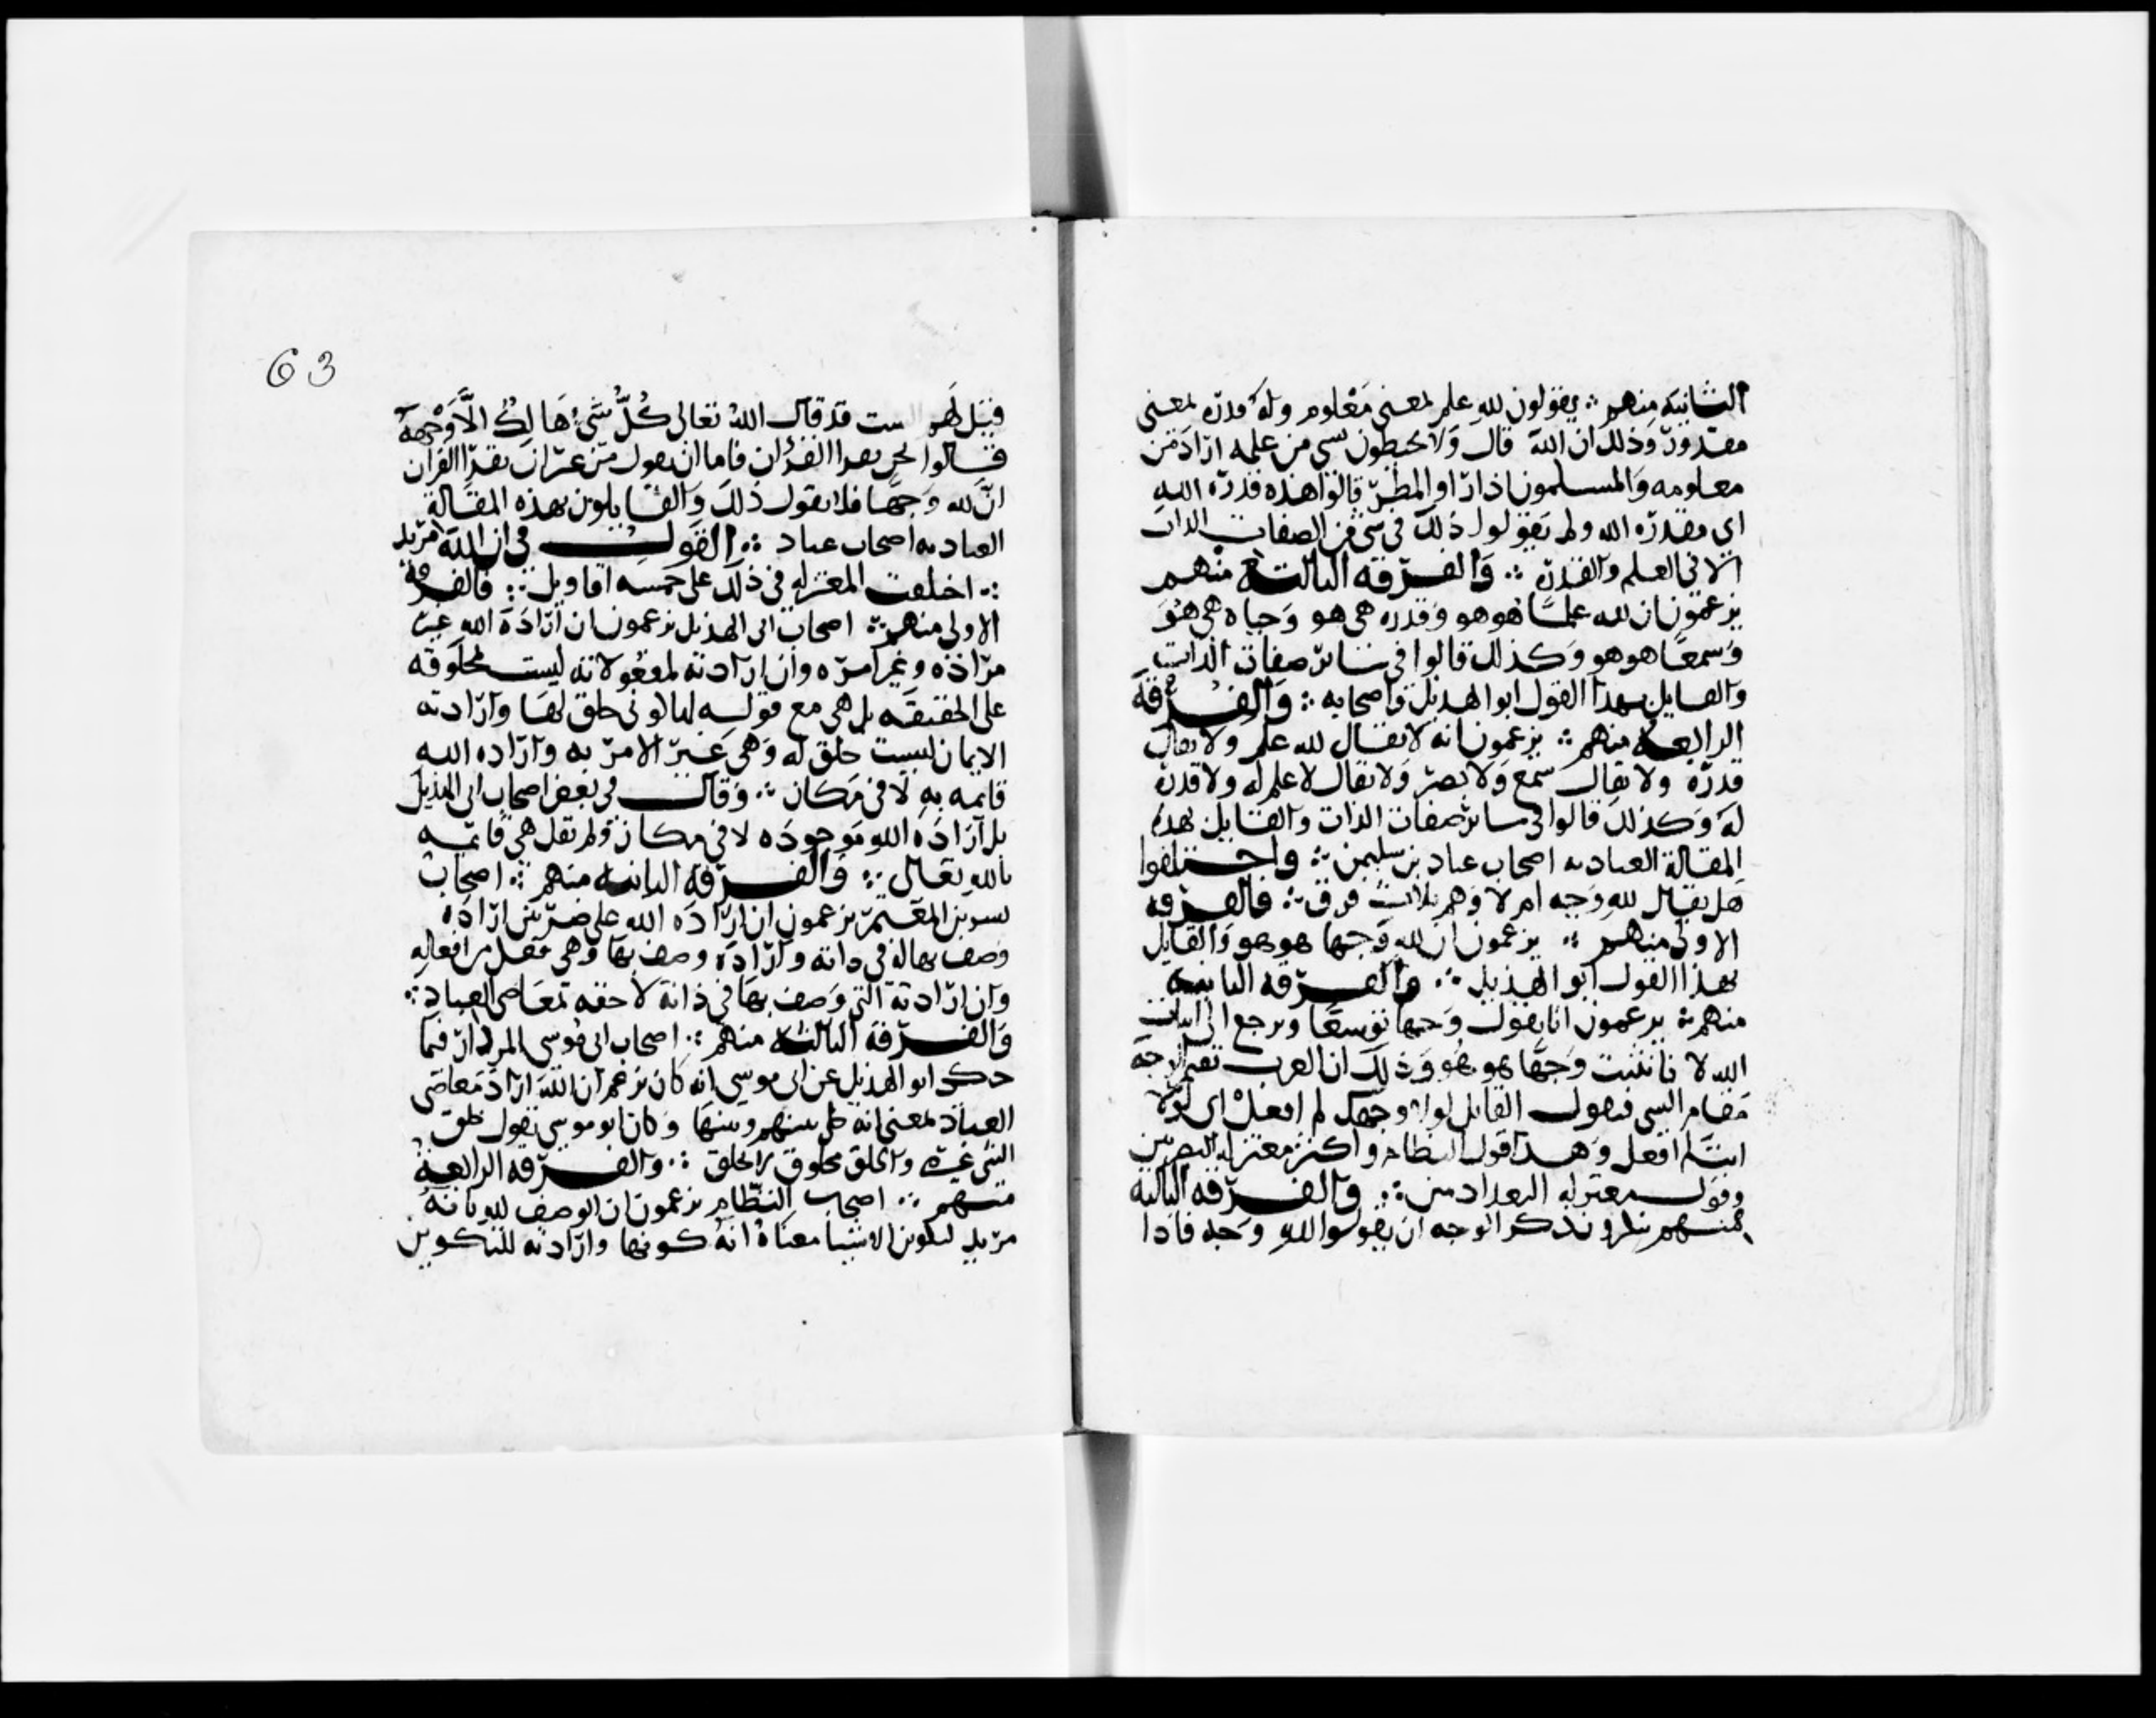 الثانية منهم ؞ يقولون لله علم بمعنى معلوم وله قدرة بمعنى
مقدور وذلك ان الله قال ولا يحيطون بشي من علمه اراد من
معلومه والمسلمون اذا راوا المطر قالوا هذه قدرة الله
اي مقدرة الله ولم يقولوا ذلك في شي من الصفات الذات
الا في العلم والقدرة ؞ والفرقة الثالثة منهم
يزعمون ان لله علما هو هو وقدرة هي هو وحياة هي هو
وسمعا هو هو وكذلك قالوا في سائر صفات الذات
والقايل بهذا القول ابو الهذيل واصحابه ؞ والفرقة
الرابعة منهم ؞ يزعمون انه لا يقال لله علم ولا يقال
قدرة ولا يقال سمع ولا بصر ولا يقال لا علم له ولا قدرة
له وكذلك قالوا في سائر صفات الذات والقايل بهذه
المقالة العبادية اصحاب عباد بن سليمن ؞ واختلفوا
هل يقال لله وجه ام لا وهم ثلاث فرق ؞ فالفرقة
الاولى منهم ؞ يزعمون ان لله وجها هو هو والقايل
بهذا القول ابو الهذيل ؞ والفرقة الثانية
منهم ؞ يزعمون انا نقول وجها توسعا ونرجع الى اثبات
الله لا نا نثبت وجها هو هو وذلك ان العرب تقيم الوجه
مقام الشي فيقول القايل لولا وجهك لم افعل اي لولا
انت لم افعل وهذا قول النظام واكثر معتزلة البصريين
وقول معتزلة البغداديين ؞ والفرقة الثالثة
منهم ينكرون ذكر الوجه ان يقولوا لله وجه فاذا
63
قيل لهم اليست قد قال الله تعالى كُلُّ شَيْءٍ هَالِكٌ إِلَّا وَجْهَهُ
قالوا نحن نقرا القرآن فاما ان نقول من غير ان نقرا القرآن
ان لله وجها فلا نقول ذلك والقايلون بهذه المقالة
العبادية اصحاب عباد ؞ القول في ان الله مريد
؞ اختلفت المعتزلة في ذلك على خمسة اقاويل ؞ فالفرقة
الاولى منهم ؞ اصحاب ابي الهذيل يزعمون ان ارادة الله غير
مراده وغير امره وان ارادته لمفعولاته ليست بمخلوقة
على الحقيقة بل هي مع قوله لها كوني خلق لها وارادته
الايمان ليست خلق له وهي غير الامر به وارادة الله
قايمة به لا في مكان ؞ وقال بعض اصحاب ابي الهذيل
بل ارادة الله موجودة لا في مكان ولم يقل هي قائمة
بالله تعالى ؞ والفرقة الثانية منهم ؞ اصحاب
بشر بن المعتمر يزعمون ان ارادة الله على ضربين ارادة
وصف بها لله في ذاته وارادة وصف بها وهي فعل من افعاله
وان ارادته التي وصف بها في ذاته لا حقة بمعاصي العباد ؞
والفرقة الثالثة منهم ؞ اصحاب ابي موسى المردار فيما
حكى ابو الهذيل عن ابي موسى انه كان يزعم ان الله اراد معاصي
العباد بمعنى انه خلى بينهم وبينها وكان ابو موسى يقول خلق
الشي غيره والخلق مخلوق لا بخلق ؞ والفرقة الرابعة
منهم ؞ اصحاب النظام يزعمون ان الوصف لله بانه
مريد لتكوين الاشيا معناه انه كونها وارادته للتكوين